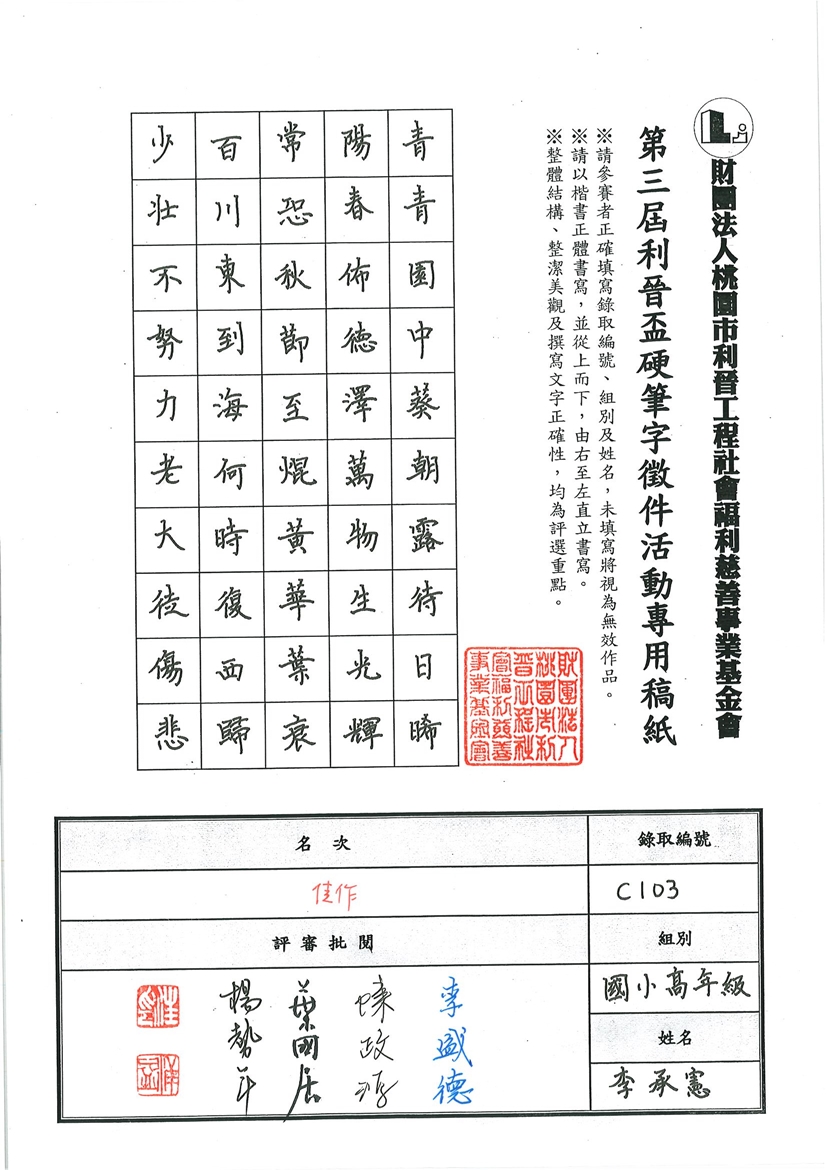 財團法人桃園市利晉工程社會福利慈善事業基金會
第三屆利晉盃硬筆字徵件活動專用稿紙
※請參賽者正確填寫錄取編號、組別及姓名，未填寫將視為無效作品。
※請以楷書正體書寫，並從上而下，由右至左直立書寫。
※整體結構、整潔美觀及撰寫文字正確性，均為評選重點。
財團法人
桃園市利
晉工程社
會福利慈善
事業基金會
青青園中葵朝露待日晞
陽春佈德澤萬物生光輝
常恐秋節至焜黃華葉衰
百川東到海何時復西歸
少壯不努力老大徒傷悲
錄取編號
C103
組別
國小高年級
姓名
李承憲
名次
佳作
評審批閱
李盛德
陳政
葉國居
楊勢年